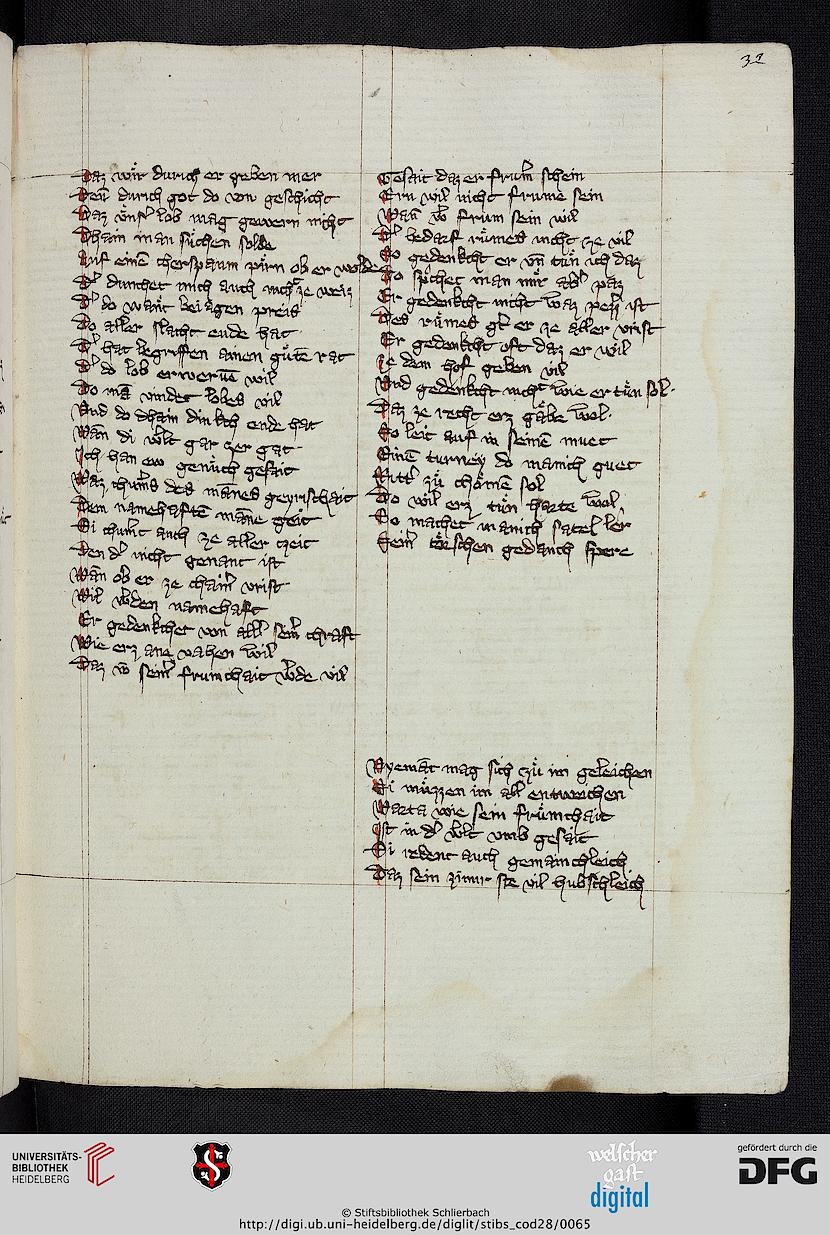 32
Daz wär durich er geben mer
Denn durich got do von geschicht
Daz unser lob mag gewern nicht
Dhain man suchen solde
Auf einē cherspaum pirn ob er wolde
Der dunchet mich auch nicht ze weiz
Der do want beiagen preis
Do aller slacht ende hat
Der hat begriffen ainen gutē rat
Der do lob erwervē wil
Do mā vindet lobes vil
Und do dhain din kch ende hat
Wan di welt gar zer gat
Ich han ew genuch gesait
Waz chumet des mānes geyrischait
Dem namehaftē māne geit
Si chumt auch ze aller czeit
Den der nicht genant ist
Wan ob er ze chainer vrist
Wil werden namehaft
Er gedenkchet von aller seiner chraft
Wie erz ane vahen wil
Daz von seiner frumchait werde vil
Gesait daz er frum schein
Ern wil nicht frume sein
Wan wer frum sein wil
Der bedarf rumes nicht ze vil
So gedenkcht er vn tun ich daz
So sprichet man mir aber paz
Er gedenkcht nicht waz pezzer ist
Des rumes gert er ze aller vrist
Er gedenkcht oft daz er wil
Ze dem hof geben vil
Und gedenkcht nicht wie er tun sol
Daz ze recht erz gäbe wol
So leit auf in seinē muet
Einē turney do manich guet
Ritter zu chomen sol
Do wil erz tun harte wol
So machet manich satel ler
Seiner törschen gedanch spere
Nyemāt mag sich zu im geleichen
Si müzzen im all entweichen
Warta wie sein frumchait
Ist in der welt umb gesait
Si redent auch gemainchleich
Daz sein zimir ste vil hubschleich
UNIVERSITÄTS-
BIBLIOTHEK
HEIDELBERG
welscher
gast
digital
gefördert durch die
DFG
© Stiftsbibliothek Schlierbach
http://digi.ub.uni-heidelberg.de/diglit/stibs_cod28/0065